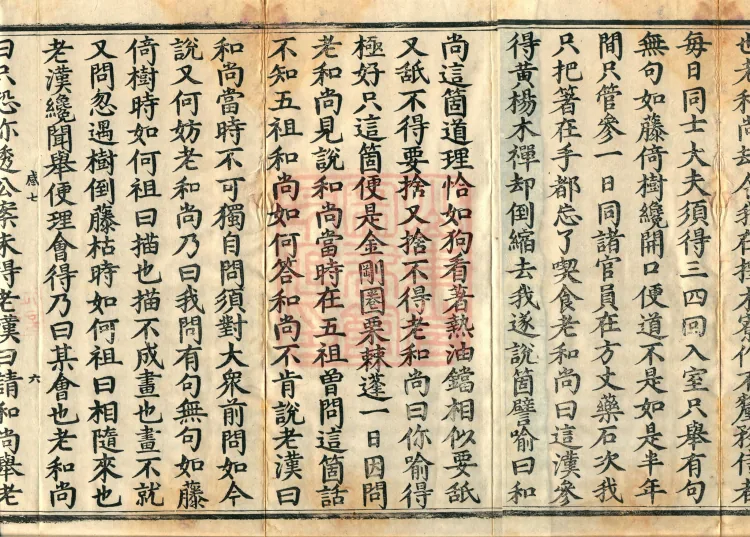 每日同士大夫須得三四回入室只舉有句
無句如藤倚樹纔開口便道不是如是半年
間只管參一日同諸官員在方丈藥石次我
只把箸在手都忘了喫食老和尚曰這漢參
得黃楊木禪却倒縮去我遂說箇譬喻曰和
尚這箇道理恰如狗看著熱油鐺相似要舐
又舐不得要捨又捨不得老和尚曰你喻得
極好只這箇便是金剛圈栗棘蓬一日因問
老和尚見說和尚當時在五祖曽問這箇話
不知五祖和尚如何答和尚不肯說老漢曰
和尚當時不可獨自問須對大衆前問如今
說又何妨老和尚乃曰我問有句無句如藤
倚樹時如何祖曰描也描不成畫也畫不就
又問忽遇樹倒藤枯時如何祖曰相隨來也
老漢纔聞舉便理會得乃曰某會也老和尚
感七 六
曰只恐你透公案未得老漢曰請和尚舉老